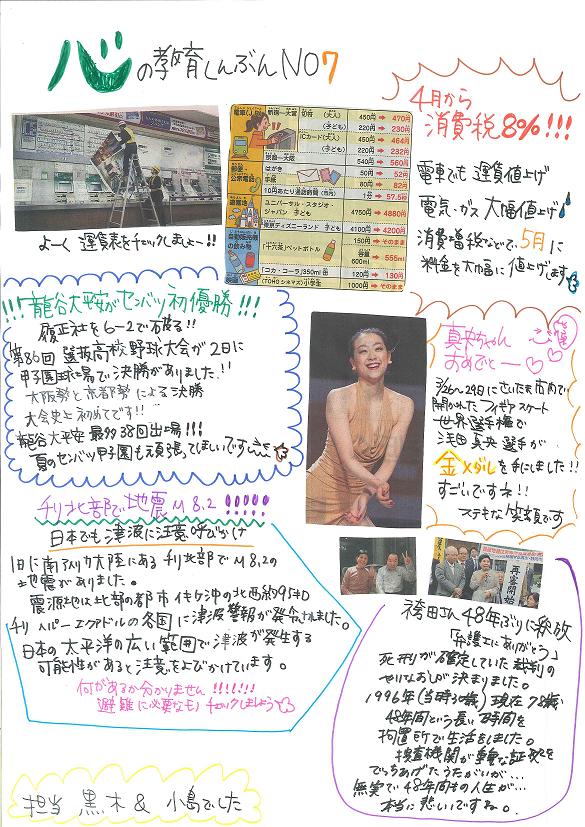 心の教育しんぶんNO7
4月から
消費税8%!!!
電車でも運賃値上げ
電気・ガス大幅値上げ
消費増税などで、5月に
料金を大幅に値上げします
よーく運賃表をチェックしましょー!!
電車(JR)
切符 (大人) 450円 → 470円
(子ども) 220円 → 230円
ICカード(大人) 450円 → 464円
(子ども) 220円 → 232円
京都ー大阪 540円 → 560円
はがき 50円 → 52円
手紙 80円 → 82円
10円あたり通話時間(市内) 1分 → 57.5秒
遊園地
ユニバーサル・スタジオ・
ジャパン 子ども 4750円 → 4880円
東京ディズニーランド 子ども 4100円 → 4200円
自動販売機
の飲み物
「十六茶」ペットボトル 150円 → そのまま
容量
600ml → 555ml
「コカ・コーラ」350ml缶 120円 → 130円
(TOHOシネマズ)小学生 1000円 → そのまま
!!!龍谷大平安がセンバツ初優勝!!!
履正社を6-2で破る!!
第86回選抜高校野球大会が2日に
甲子園球場で決勝がありました!!
大阪勢と京都勢による決勝
大会史上初めてです!!
龍谷大平安 最多38回出場!!!
夏のセンバツ甲子園も頑張ってほしいですね
真央ちゃん
おめでとー
3/26~29日にさいたま市内で
開かれたフィギアスケート
世界選手権で
浅田真央選手が
金メダルを手にしました!!
すごいですネ!!
ステキな笑顔です
チリ北部で地震M8.2!!!!!
日本でも津波に注意呼びかけ
1日に南アメリカ大陸にあるチリ北部でM8.2の
地震がありました。
震源地は北部の都市イキケ沖の北西約95キロ
チリ ペルー エクアドルの各国に津波警報が発令されました。
日本の太平洋の広い範囲で津波が発生する
可能性があると注意をよびかけています。
何があるか分かりません!!!!!!!
避難に必要なものチェックしましょう
再審開始
袴田さん48年ぶりに釈放
「弁護士にありがとう」
死刑が確定していた裁判の
やりなおしが決まりました。
1996年(当時30歳)現在78歳
48年間という長い時間を
拘置所で生活をしました。
捜査機関が重要な証拠を
でっちあげたうたがいが…
無実で48年間もの人生が…
本当に悲しいですね。
担当 黒木&小島でした